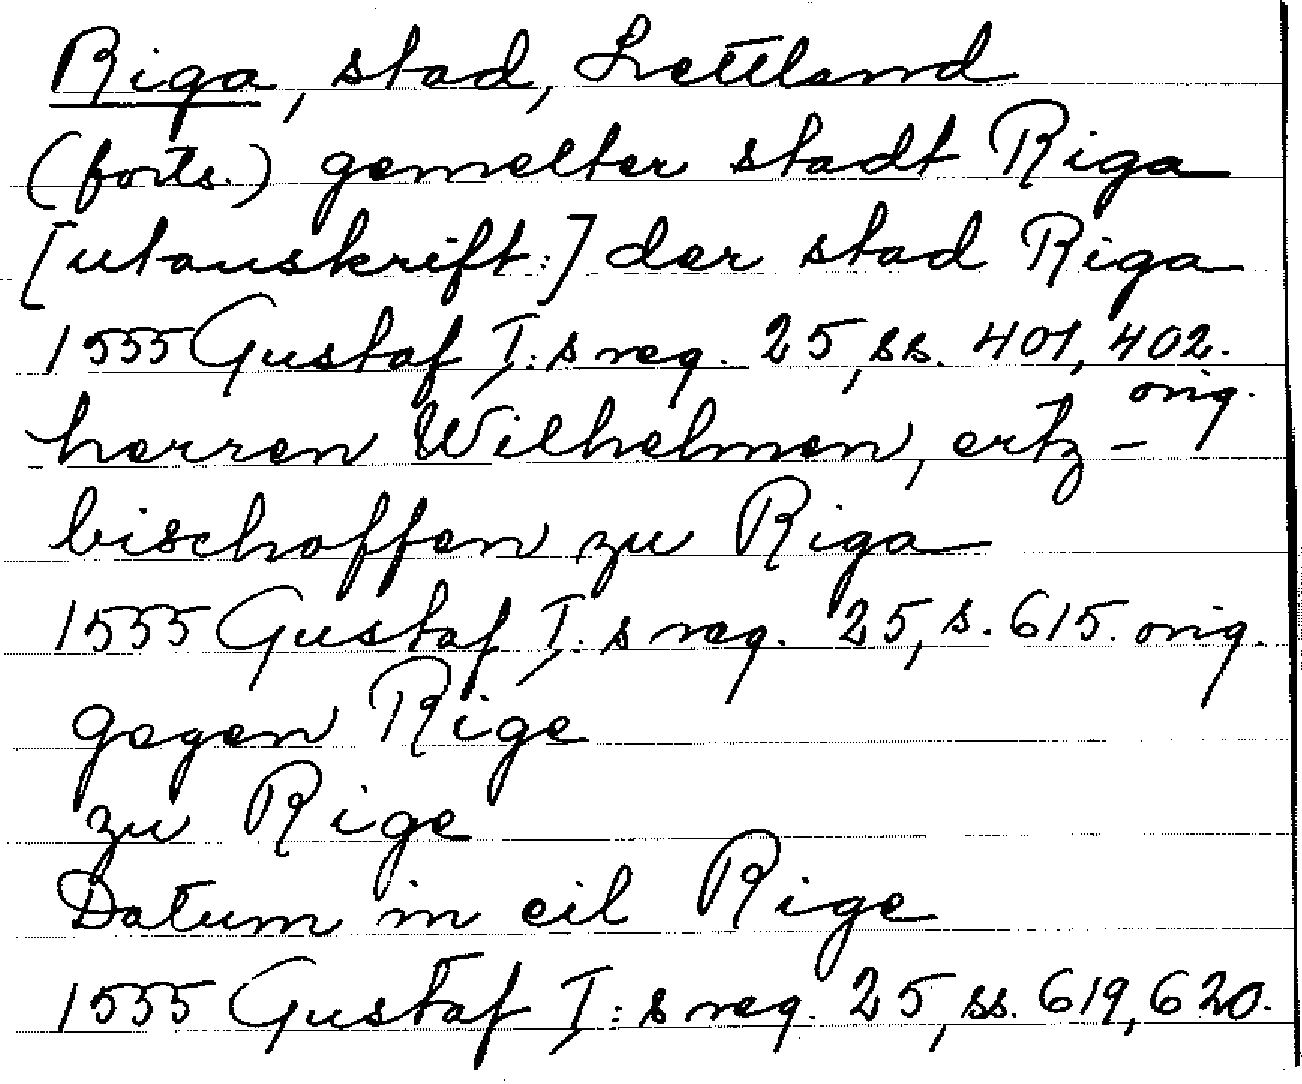 Riga, stad, Lettland
(forts.) gemelter stadt Riga
[utanskrift:] der stad Riga
1555 Gustaf I:s reg. 25, ss. 401, 402. orig.
herren Wilhelmen, ertz-
bischoffen zu Riga
1555 Gustaf I:s reg. 25, s. 615. orig.
gegen Rige
zu Rige
Datum in eil Rige
1555 Gustaf I:s reg. 25, ss. 619, 620.